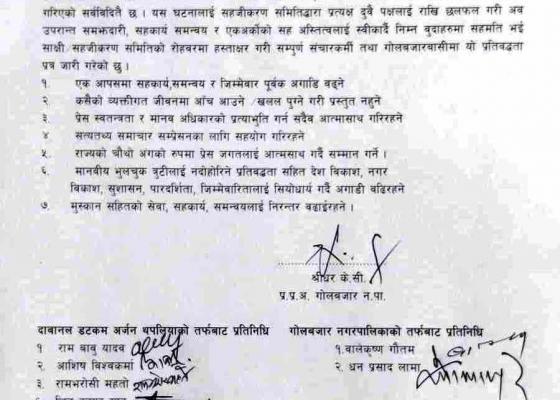 गरिएको सर्वविदितै छ । यस घटनालाई सहजीकरण समितिद्वारा प्रत्यक्ष दुवै पक्षलाई राखि छलफल गरी अब
उपरान्त समझदारी, सहकार्य समन्वय र एकअर्काको सह अस्तित्वलाई स्वीकार्दै निम्न बुदाहरुमा सहमति भई
साक्षी सहजीकरण समितिको रोहवरमा हस्ताक्षर गरी सम्पुर्ण संचारकर्मी तथा गोलबजारबासीमा यो प्रतिवद्धता
पत्र जारी गरेको छु ।
१. एक आपसमा सहकार्य,समन्वय र जिम्मेवार पूर्वक अगाडि बढ्ने
२. कसैको व्यक्तीगत जीवनमा आँच आउने /खलल पुग्ने गरी प्रस्तुत नहुने
३. प्रेस स्वतन्त्रता र मानव अधिकारको प्रत्याभुति गर्न सदैव आत्मासाथ गरिरहने
४ सत्यतथ्य समाचार सम्प्रेसनका लागि सहयोग गरिरहने
५. राज्यको चौथो अंगको रुपमा प्रेस जगतलाई आत्मसाथ गर्दै सम्मान गर्ने ।
६. मानवीय भुलचुक त्रुटीलाई नदोहोरिने प्रतिवद्धता सहित देश विकाश, नगर
विकाश, सुशासन, पारदर्शिता, जिम्मेवारितालाई सिरोधार्य गर्दै अगाडी वढिरहने
७. मुस्कान सहितको सेवा, सहकार्य, समन्वयलाई निरन्तर बढाईरहने ।
श्रीधर के.सी.
प्र.प्र.अ. गोलबजार न.पा.
दावानल डटकम अर्जन थपलियाको तर्फबाट प्रतिनिधि
१ राम बाबु यादव
२. आशिष विश्वकर्मा
३. रामभरोसी महतो
गोलबजार नगरपालिकाको तर्फबाट प्रतिनिधि
१.वालकृष्ण गौतम
२. धन प्रसाद लामा